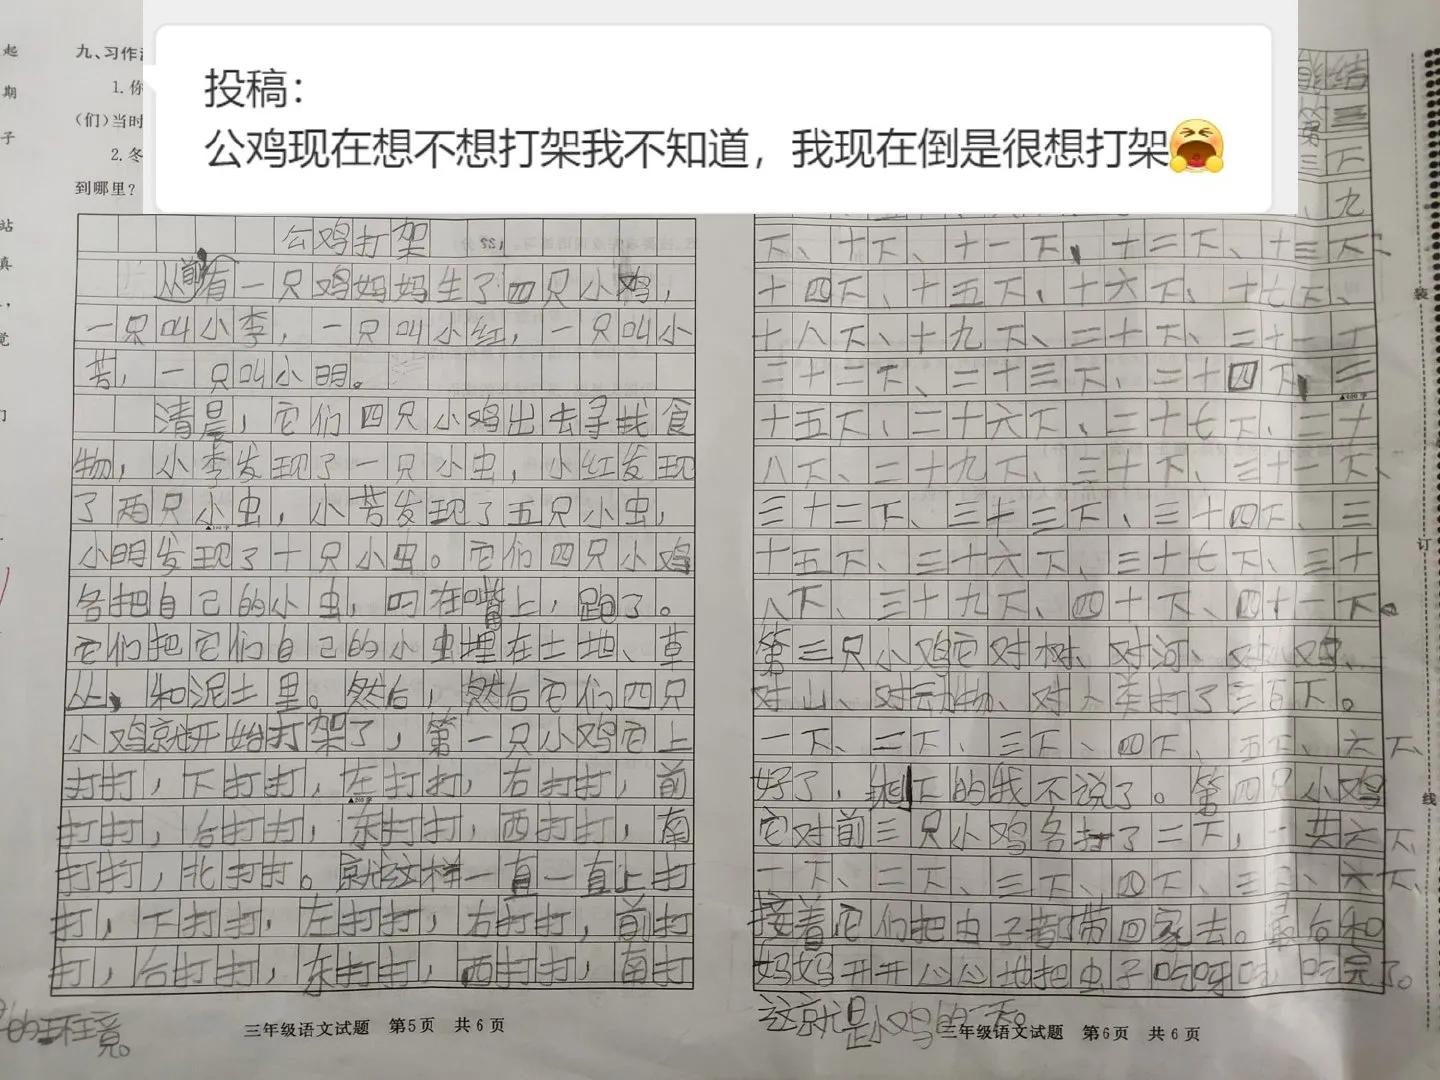 起
期
子
站
真
觉
们
九、习作
1. 你
(们)当时
2. 冬
到哪里？
投稿：
公鸡现在想不想打架我不知道，我现在倒是很想打架
公鸡打架
从前有一只鸡妈妈生了四只小鸡，
一只叫小李，一只叫小红，一只叫小
苦，一只叫小明。
清晨，它们四只小鸡出去寻找食
物，小李发现了一只小虫，小红发现
了两只小虫，小苦发现了五只小虫，
小明发现了十只小虫。它们四只小鸡
各把自己的小虫，叼在嘴上，跑了。
它们把它们自己的小虫埋在土地、草
丛、和泥土里。然后，然后它们四只
小鸡就开始打架了，第一只小鸡它上
打打，下打打，左打打，右打打，前
打打，后打打，东打打，西打打，南
打打，北打打。就这样一直一直上打
打，下打打，左打打，右打打，前打
打，后打打，东打打，西打打，南打
的环境。
三年级语文试题 第5页 共6页
结
第
三下
九
下、十下、十一下、十二下、十三下、
十四下、十五下、十六下、十七下、
十八下、十九下、二十下、二十一下
二十二下、二十三下、二十四下、二
十五下、二十六下、二十七下、二十
八下、二十九下、三十下、三十一下、
三十二下、三十三下、三十四下、三
十五下、三十六下、三十七下、三十
八下、三十九下、四十下、四十一下。
第三只小鸡它对树、对河、对小鸡、
对山、对动物、对人类打了三百下。
一下、二下、三下、四下、五下、六下、
好了，剩下的我不说了。第四只小鸡
它对前三只小鸡各打了二下，一共六下、
一下、二下、三下、四下、五下、六下、
接着它们把虫子都带回家去。最后和
妈妈开开心心地把虫子吃呀吃，吃完了。
这就是小鸡的一天。
三年级语文试题 第6页 共6页
装
订
线